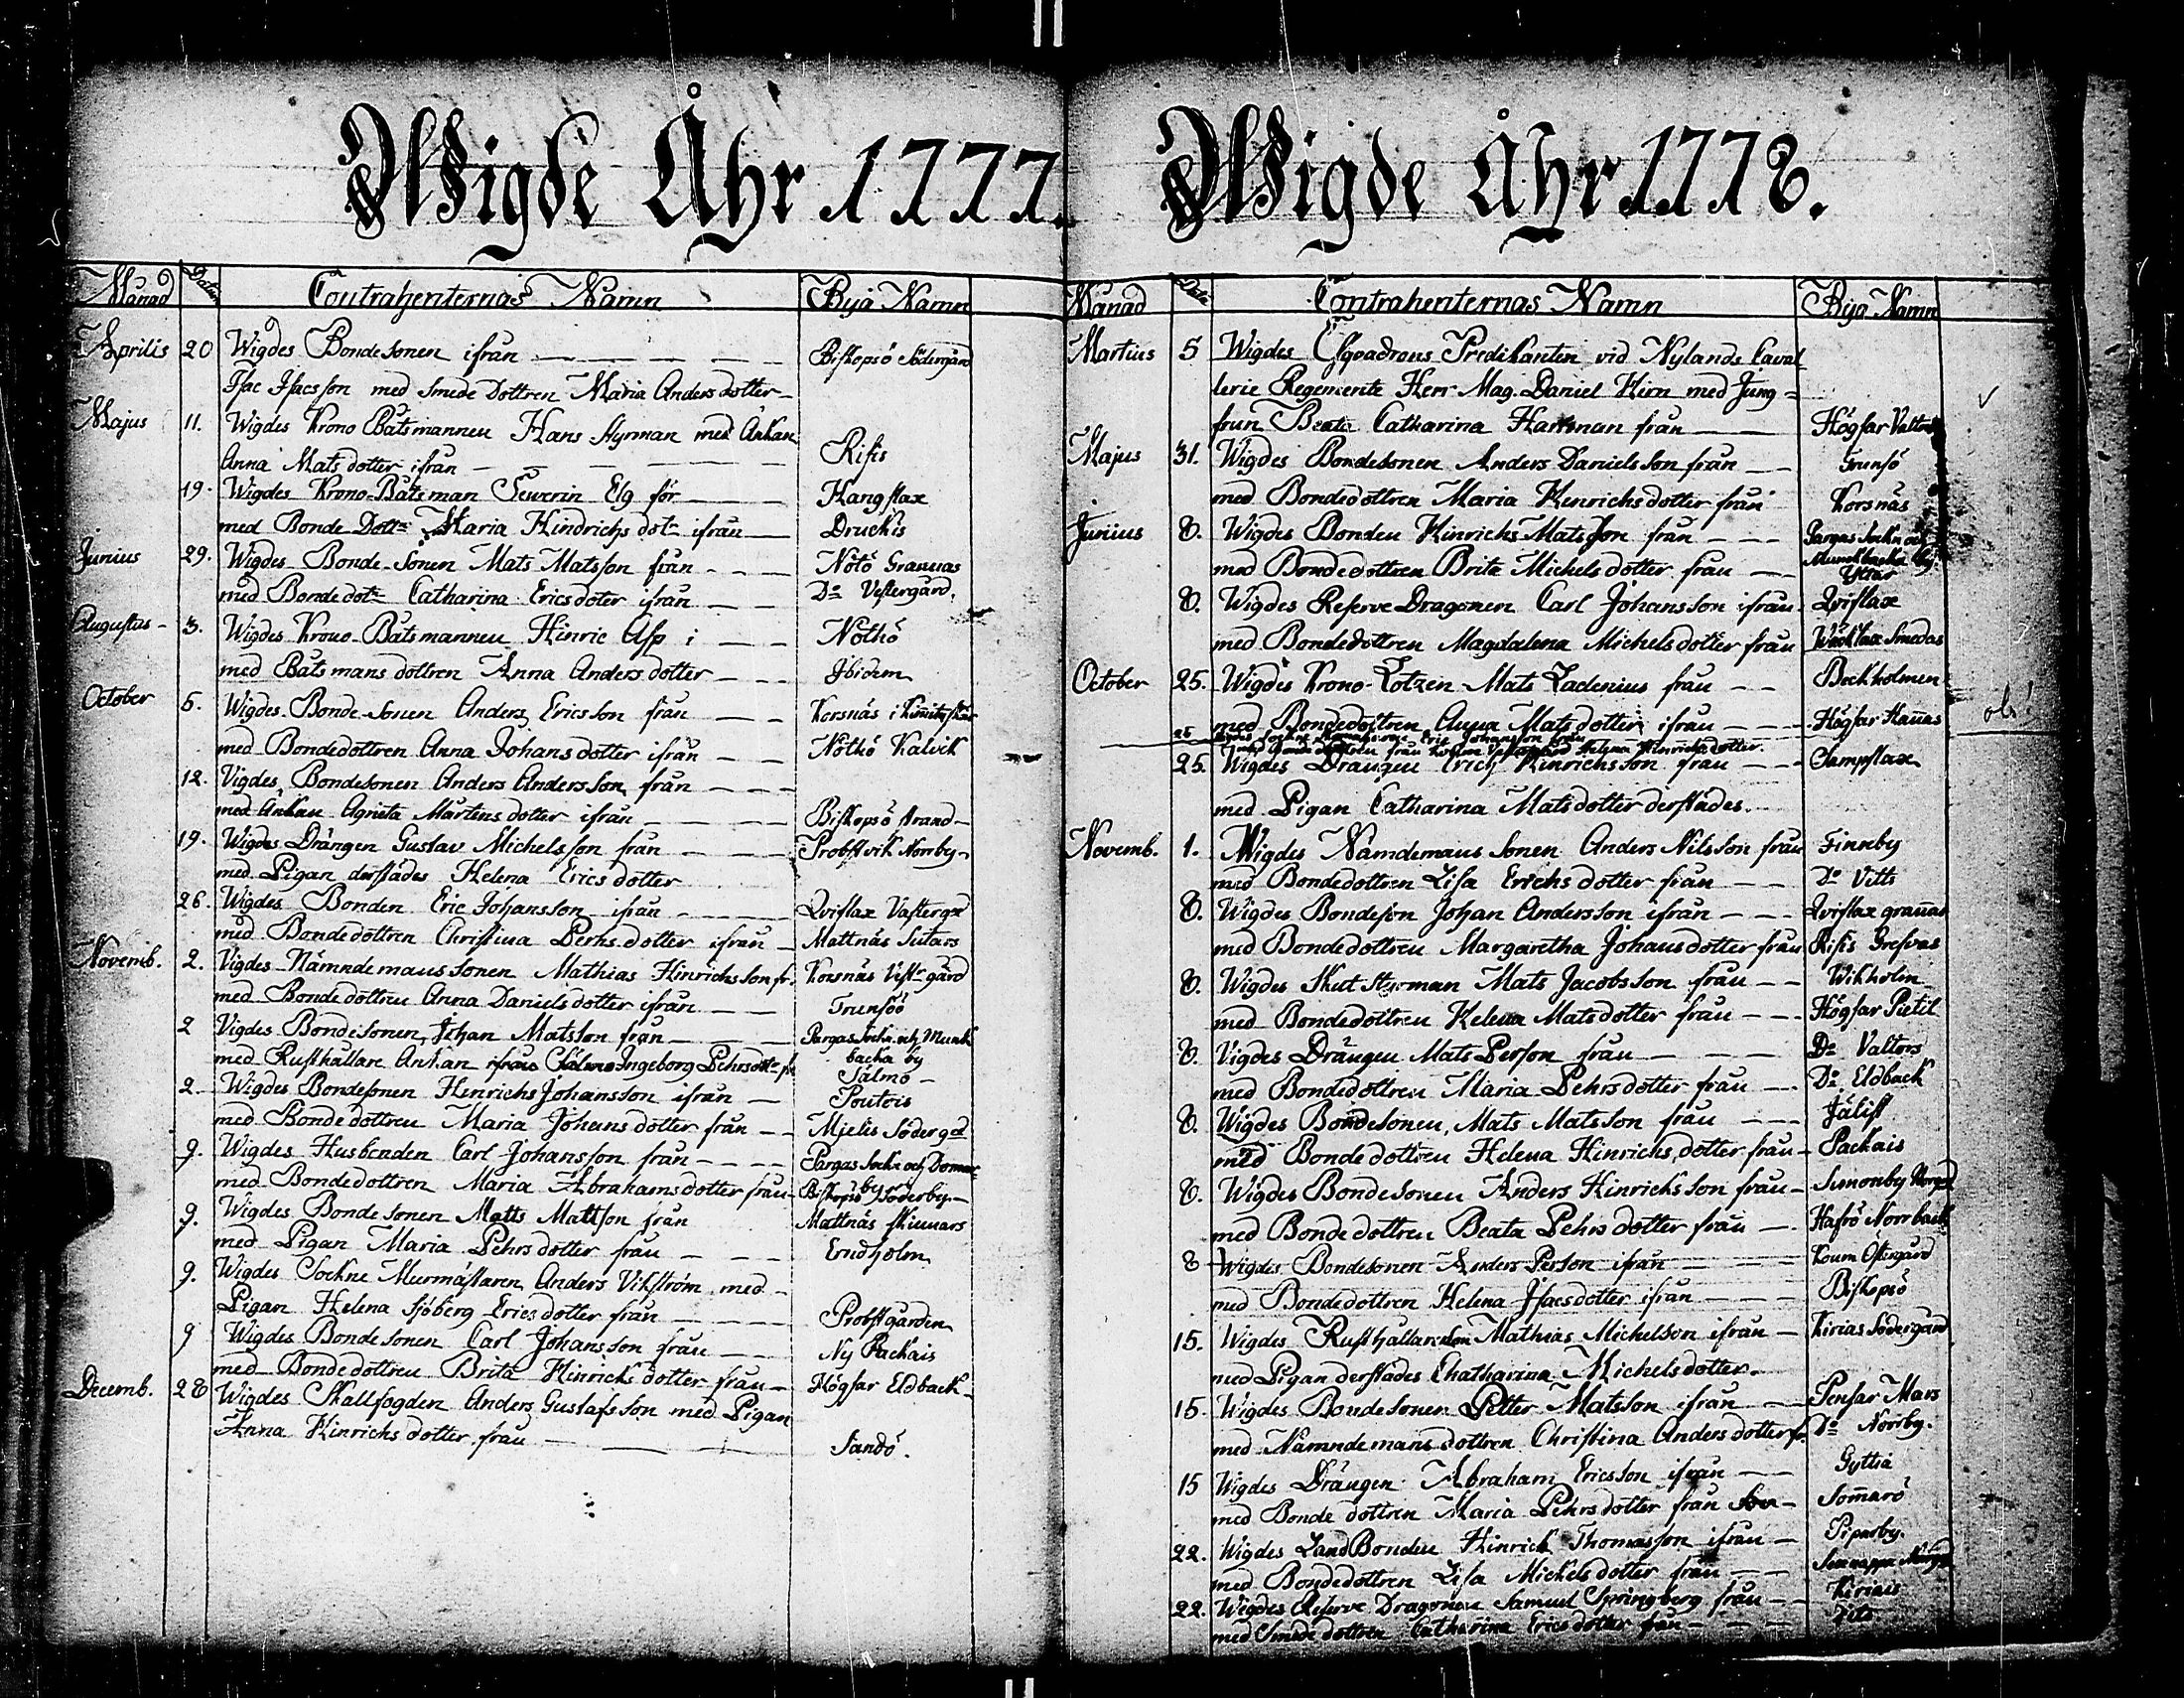 Wigde Åhr 1777.
Månad Datum Contrahenternas Namn Byä Namn
Aprilis 20 Wigdes Bondesonen ifrån Biskopsö Södergård
Isac Isacsson med Smede Dottren Maria Anders dotter
Majus 11. Wigdes Krono Båtsmannen Hans Styrman med Änkan
Anna Mats dotter ifrån Risis
19. Wigdes Krono-Båtsman Sewerin Elg för Kangslax
med Bonde Dottr Maria Hindrichs dotr ifrån Druckis
Junius 29. Wigdes Bonde-Sonen Mats Matsson från Nötö Grannas
med Bonde dotr Catharina Ericsdoter ifrån Do Vestergård.
Augustus 3. Wigdes Krono-Båtsmannen Hinric Asp i Nötkö
med Båtsmans dottren Anna Anders dotter Ibidem
October 5. Wigdes Bonde-sonen Anders Ericsson från Korsnäs i Kimito
med Bondedottren Anna Johans dotter ifrån Nötkö Kalvik
12. Vigdes Bondesonen Anders Andersson från
med Änkan Agneta Mårtens dotter ifrån Biskopsö strand
19. Wigdes Drängen Gustav Michelsson från Probstvik Norrby
med Pigan derstädes Helena Erics dotter
26. Wigdes Bonden Eric Johansson ifrån Qvislax Västergd
med Bondedottren Christina Perhs dotter ifrån Mattnäs Sutars
Novemb. 2. Vigdes Nämndemans Sonen Mathias Hinrichs son fr. Korsnäs Vestr gård
med Bondedottren Anna Daniels dotter ifrån Trunsöö
2 Vigdes Bondesonen Johan Matsson från Pargas Sockn och Munk
med Rusthållare Änkan Ingeborg Pehrsdotr fr. backa by
Sälmö
2. Wigdes Bondesonen Henrichs Johansson ifrån Poutois
med Bondedottren Maria Johans dotter från Mjelis Söder gd
9. Wigdes Husbonden Carl Johansson från Pargas Sockn och
med Bondedottren Maria Abrahams dotter från Biskopsö Söderby
9. Wigdes Bondesonen Matts Mattson från Mattnäs Skinnars
med Pigan Maria Pehrs dotter från Erndholm
9. Wigdes Sockne Murmästaren Anders Vikström med
Pigan Helena Sjöberg Erics dotter från Probstgården
9 Wigdes Bondesonen Carl Johansson från Ny Packais
med Bondedottren Brita Hinrichs dotter från Högsar Eldback
Decemb. 28 Wigdes Skallfogden Anders Gustafsson med Pigan
Anna Hinrichs dotter från Sandö.
Wigde Åhr 1778.
Månad Dato Contrahenternas Namn Bya Namn
Martius 5 Wigdes Esqvadrons Predikanten vid Nylands Caval
lerie Regemente Herr Mag. Daniel Hirn med Jung=
frun Beata Catharina Hartman från Högsar Valtors
Majus 31. Wigdes Bondesonen Anders Danielsson från Trunsö
med Bondedottren Maria Henrichsdotter från Korsnäs
Junius 8. Wigdes Bonden Hinrichs Matsson från Pargas Sockn och
Munckbacka by
med Bondedottren Brita Michels dotter från Yttar
8. Wigdes Reserve Dragonen Carl Johansson ifrån Qvislax
med Bondedottren Magdalena Michels dotter från Smedas
October 25. Wigdes Krono-Lotzen Mats Ladenius från Bockholmen
med Bondedottren Anna Mats dotter ifrån Högsar Hannas
25 Eric Johansson från
från Helena Hinrichs dotter. obs!
25. Wigdes Drängen Erich Hinrichsson från Sampslax
med Pigan Catharina Matsdotter derstädes.
Novemb. 1. Wigdes Nämdemans sonen Anders Nilsson från Finnby
med Bondedottren Lisa Erichs dotter från Do Vitts
8. Wigdes Bondeson Johan Andersson ifrån Qvislax grannas
med Bondedottren Margaretha Johansdotter från Risis Grefvas
8. Wigdes Skutstyrman Mats Jacobsson från Wikholm
med Bondedottren Helena Matsdotter från Högsar Pietil
8. Vigdes Drängen Mats Person från Do Valtors
med Bondedottren Maria Pehrsdotter från Do Eldback
8. Wigdes Bondesonen, Mats Matsson från Jälist
med Bonde dottren Helena Hinrichs dotter från Packais
8. Wigdes Bondesonen Anders Hinrichsson från Simonby Norrgd
med Bonde dottren Beata Pehrs dotter från Hafrö Norrback
8 Wigdes Bondesonen Anders Person ifrån Koum Östergård
med Bondedottren Helena Isacsdotter ifrån Biskopsö
15. Wigdes Rusthållaresson Mathias Michelson ifrån Kirias Södergård
med Pigan derstädes Chatharina Michelsdotter.
15. Wigdes Bondesonen Petter Matsson ifrån Pensar Mars
med Nämndemans dottren Christina Anders dotter fr. Do Norrby.
15 Wigdes Drängen Abraham Ericsson ifrån Gyttia
med Bonde dottren Maria Pehrs dotter från Somarö
22. Wigdes LandBonden Hinrick Thomasson ifrån Piparby.
med Bondedottren Lisa Michels dotter från
22. Wigdes Reserve Dragonen Samuel Springberg från Kiriais
med Smede dottren Catharina Erics dotter från Dito